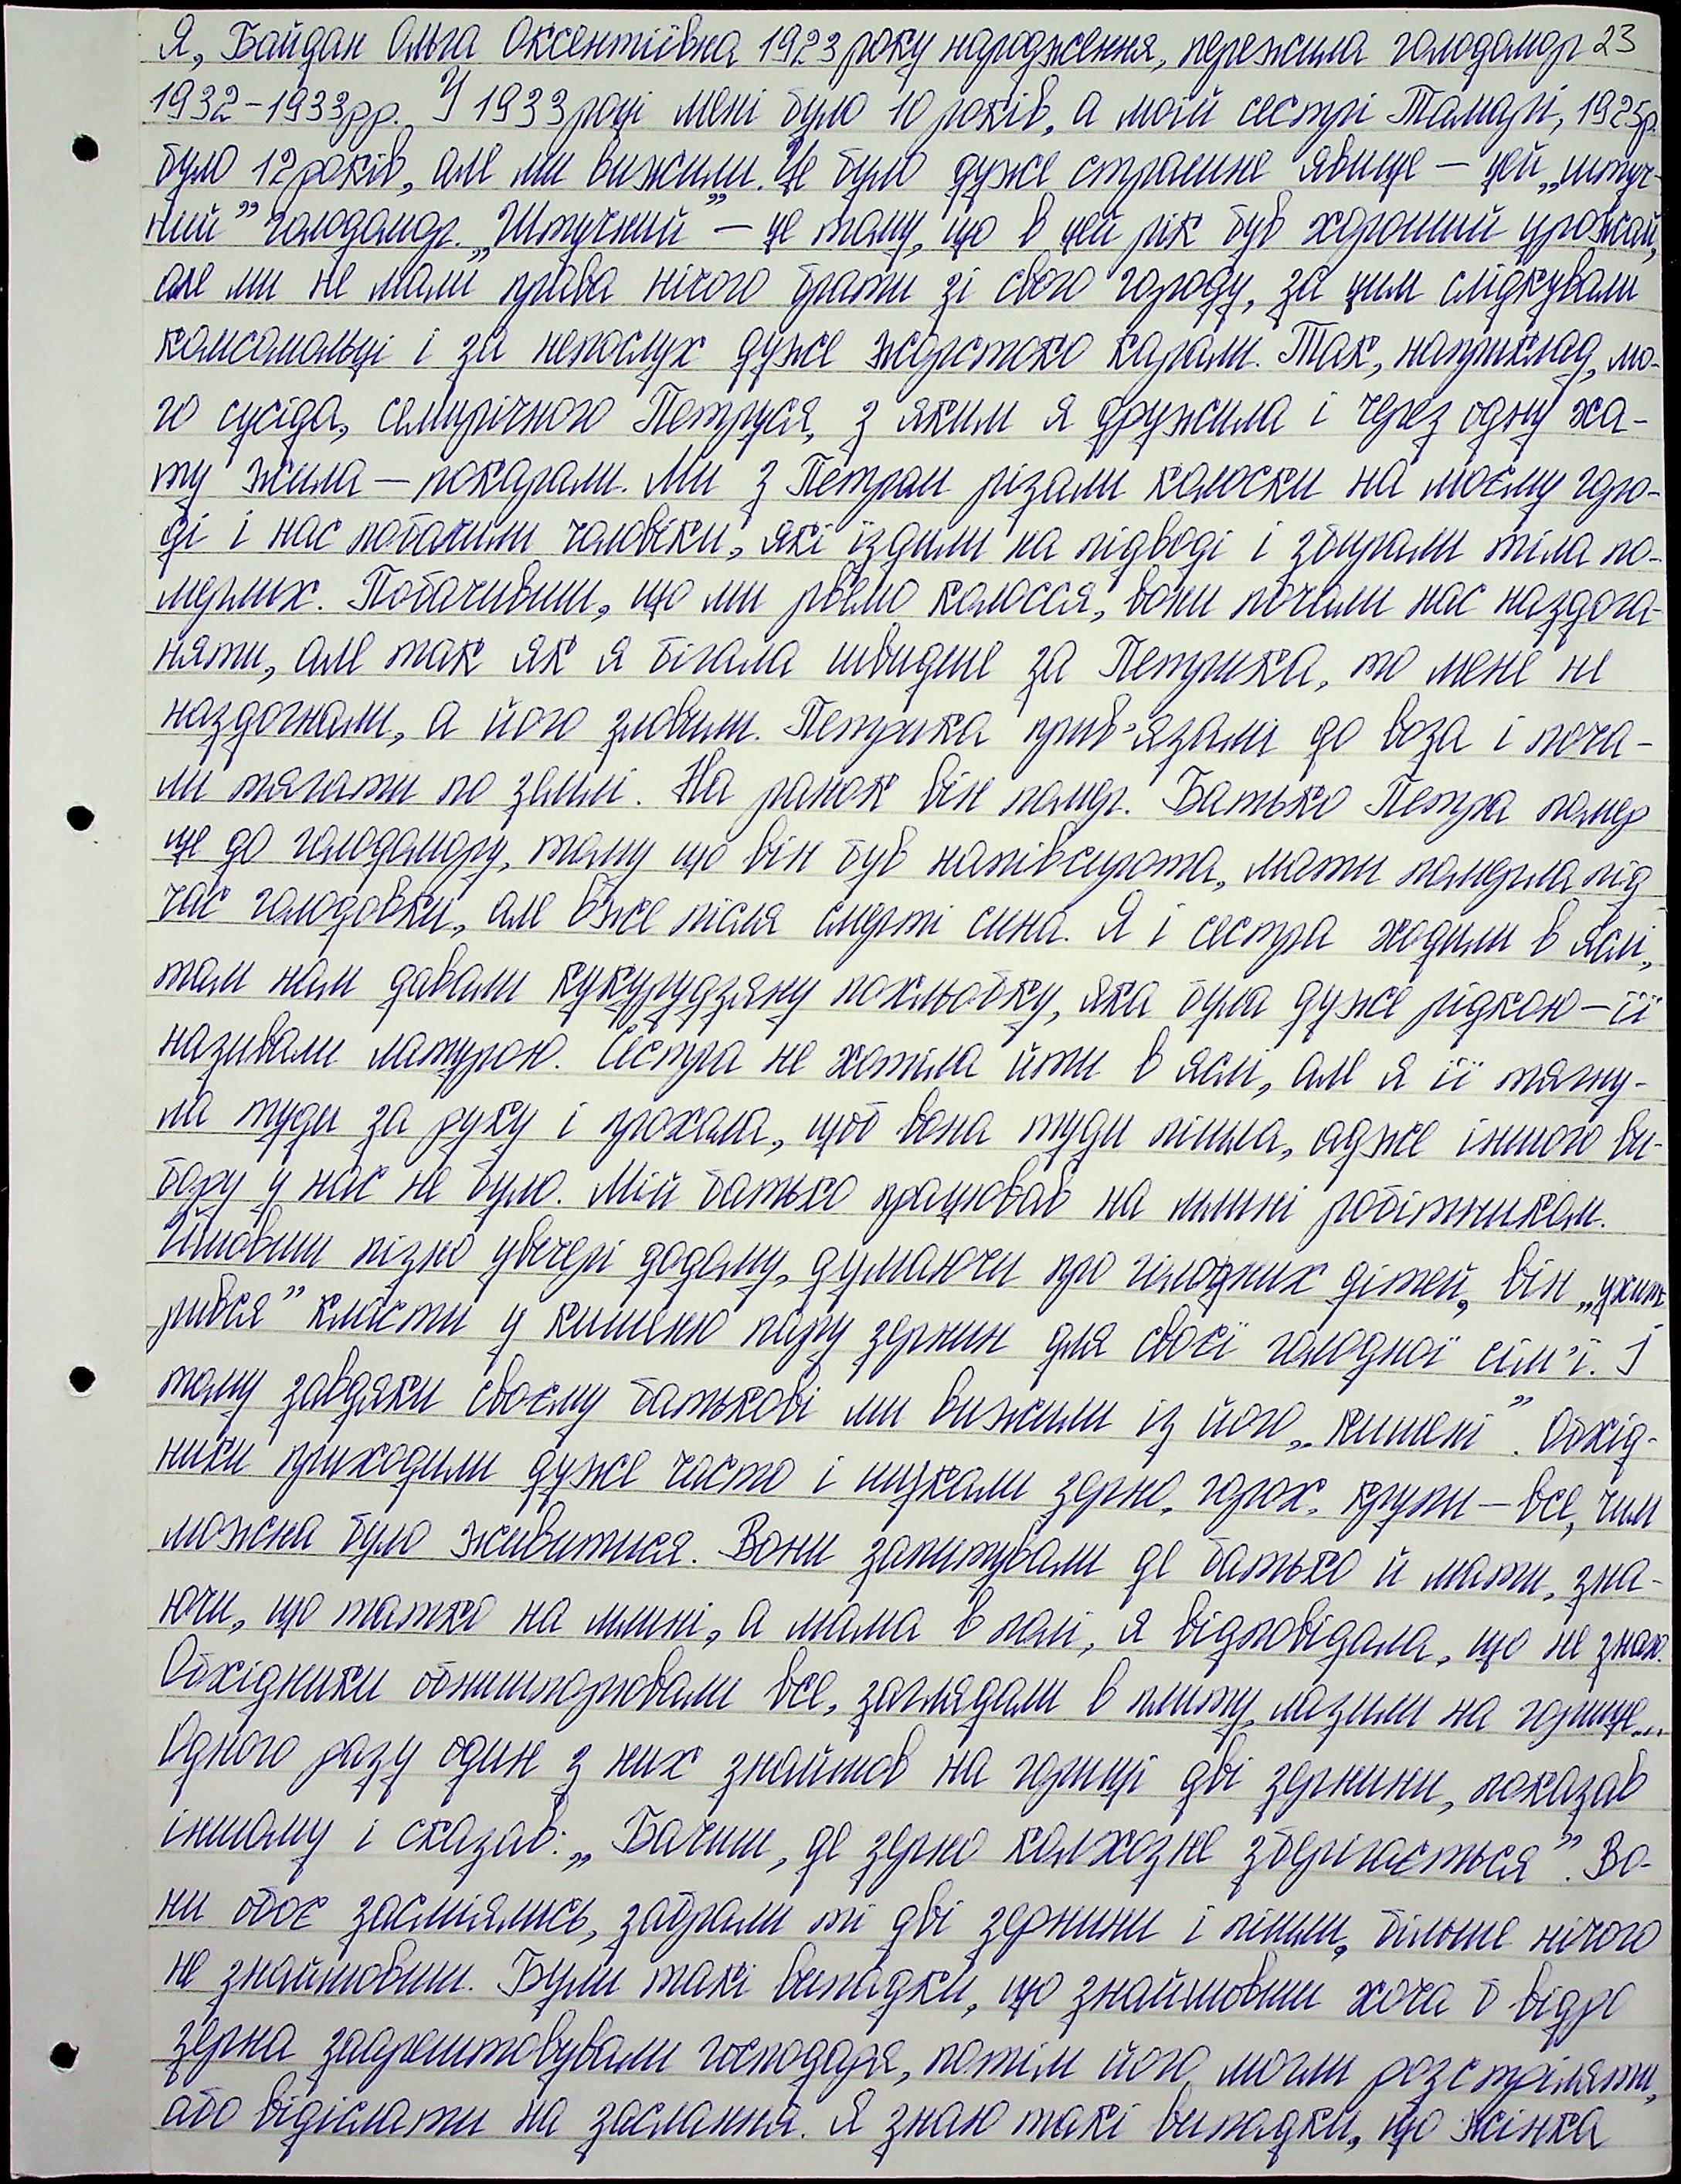 Я, Байдан Ольга Оксентіївна 1923 року народження, пережила голодомор 23
1932-1933рр. У 1933 році мені було 10 років, а моїй сестрі Тамарі, 1925р.
було 12 років, але ми вижили. Це було дуже страшне явище – цей „штуч-
ний” голодомор. „Штучний” – це тому, що в цей рік був хороший урожай,
але ми не мали права нічого брати зі свого городу, за цим слідкували
комсомольці і за непослух дуже жорстоко карали. Так, наприклад, мо-
го сусіда, семирічного Петруся, з яким я дружила і через одну ха-
ту жила – покарали. Ми з Петром різали колоски на моєму горо-
ді і нас побачили чоловіки, які їздили на підводі і збирали тіла по-
мерлих. Побачивши, що ми рвемо колосся, вони почали нас наздога-
няти, але так як я бігала швидше за Петрика, то мене не
наздогнали, а його зловили. Петрика прив'язали до воза і поча-
ли тягати по землі. На ранок він помер. Батько Петра помер
ще до голодомору, тому що він був напівсирота, мати померла під
час голодовки, але вже після смерті сина. Я і сестра ходили в яслі,
там нам давали кукурудзяну похльобку, яка була дуже рідкою – її
називали матурою. Сестра не хотіла йти в яслі, але я її тягну-
ла туди за руку і прохала, щоб вона туди пішла, адже іншого ви-
бору у нас не було. Мій батько працював на млині робітником.
Йшовши пізно увечері додому, думаючи про голодних дітей, він „ухит-
рився” класти у кишеню пару зернин для своєї голодної сім'ї. І
тому завдяки своєму батькові ми вижили із його „кишені”. Обхід-
ники приходили дуже часто і шукали зерно, горох, крупи – все, чим
можна було живитися. Вони запитували де батько й мати, зна-
ючи, що татко на млині, а мама в полі, я відповідала, що не знаю.
Обхідники обнишпорювали все, заглядали в плиту, лазили на горище...
Одного разу один з них знайшов на горищі дві зернини, показав
іншому і сказав: „Бачиш, де зерно колхозне зберігається”. Во-
ни обоє засміялись, забрали ті дві зернини і пішли, більше нічого
не знайшовши. Були такі випадки, що знайшовши хоча б відро
зерна заарештовували господаря, потім його могли розстріляти,
або відіслати на заслання. Я знаю такі випадки, що жінка